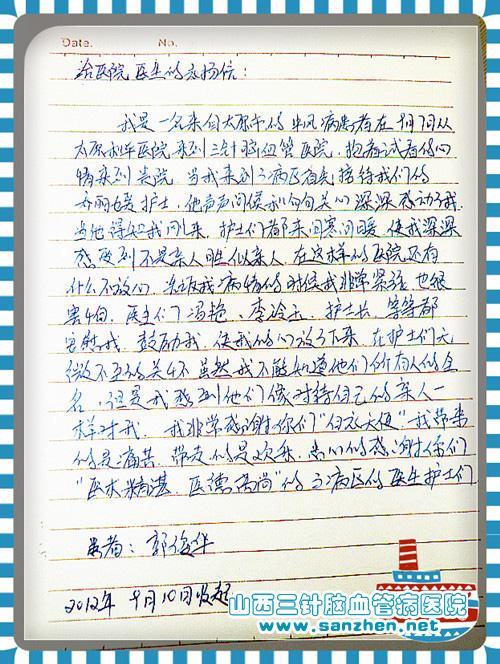 Date. No.
给医院医生的表扬信：
我是一名来自太原市的中风病患者在9月7日从
太原利华医院来到三针脑血管医院，抱着试看的心
情来到贵院，当我来到三病区首先接待我们的
乔丽媛护士，他声声问候和句句关心深深感动了我，
当他得知我回来，护士们都来问寒问暖，使我深深
感受到不是亲人胜似亲人，在这样的医院还有
什么不放心，我病情的时候我非常紧张，也很
害怕，医生们冯艳、李冷玉、护士长，等等都
安慰我，鼓励我，使我的心放了下来，在护士们无
微不至的关怀，虽然我不能知道他们所有人的全
名，但是我感到他们像对待自己的亲人一
样对我，我非常感谢你们"白衣天使"我带来
的是痛苦，带走的是欢乐，忠心的感谢你们
"医术精湛，医德高尚"的三病区的医生护士们
患者：郭俊华
2012年9月10日
山西三针脑血管病医院
www.sanzhen.net